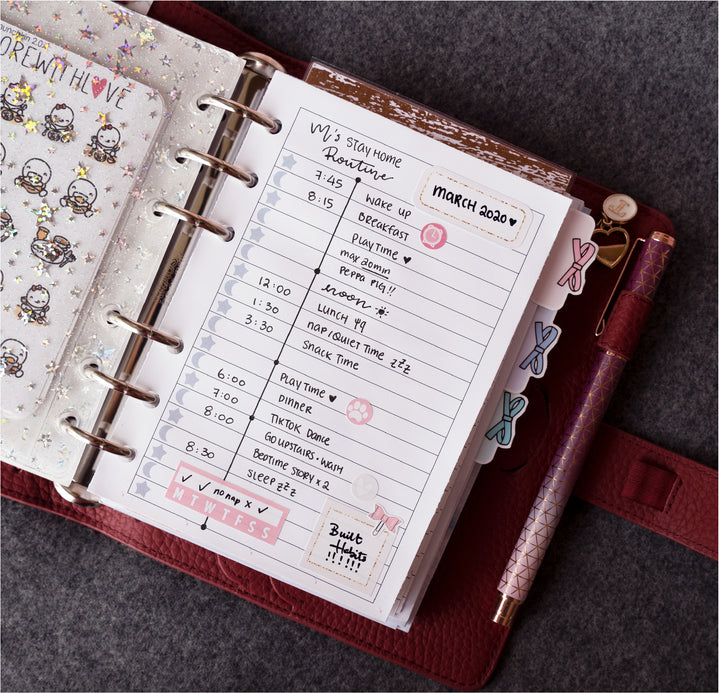 OREWITHLOVE
M's STAY HOME
Routine
MARCH 2020 ♥
7:45 WAKE UP
8:15 BREAKFAST
PLAYTIME ♥
max 20min
PEPPA PIG!!
noon
12:00 LUNCH
1:30 NAP/QUIET TIME zzz
3:30 SNACK TIME
6:00 PLAYTIME ♥
7:00 DINNER
8:00 TIKTOK DANCE
GO UPSTAIRS · WASH
BEDTIME STORY x 2
8:30 SLEEP zzz
✓ ✓ no nap x ✓
M T W T F S S
Built
Habits
!!!!!!